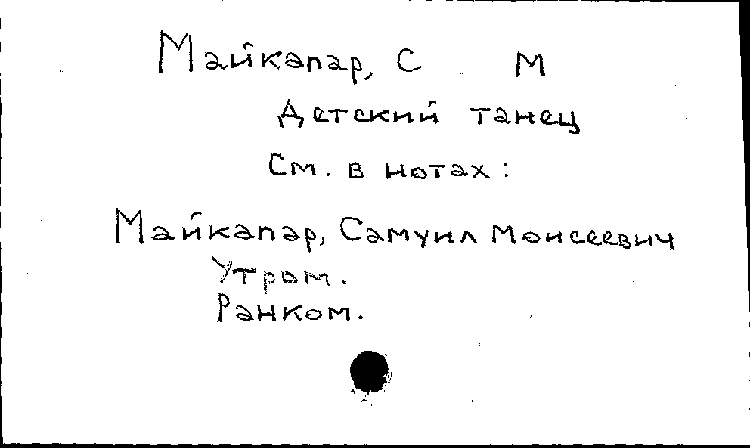 Майкапар, С М
Детский танец
См. в нотах:
Майкапар, Самуил Моисеевич
Утром.
Ранком.